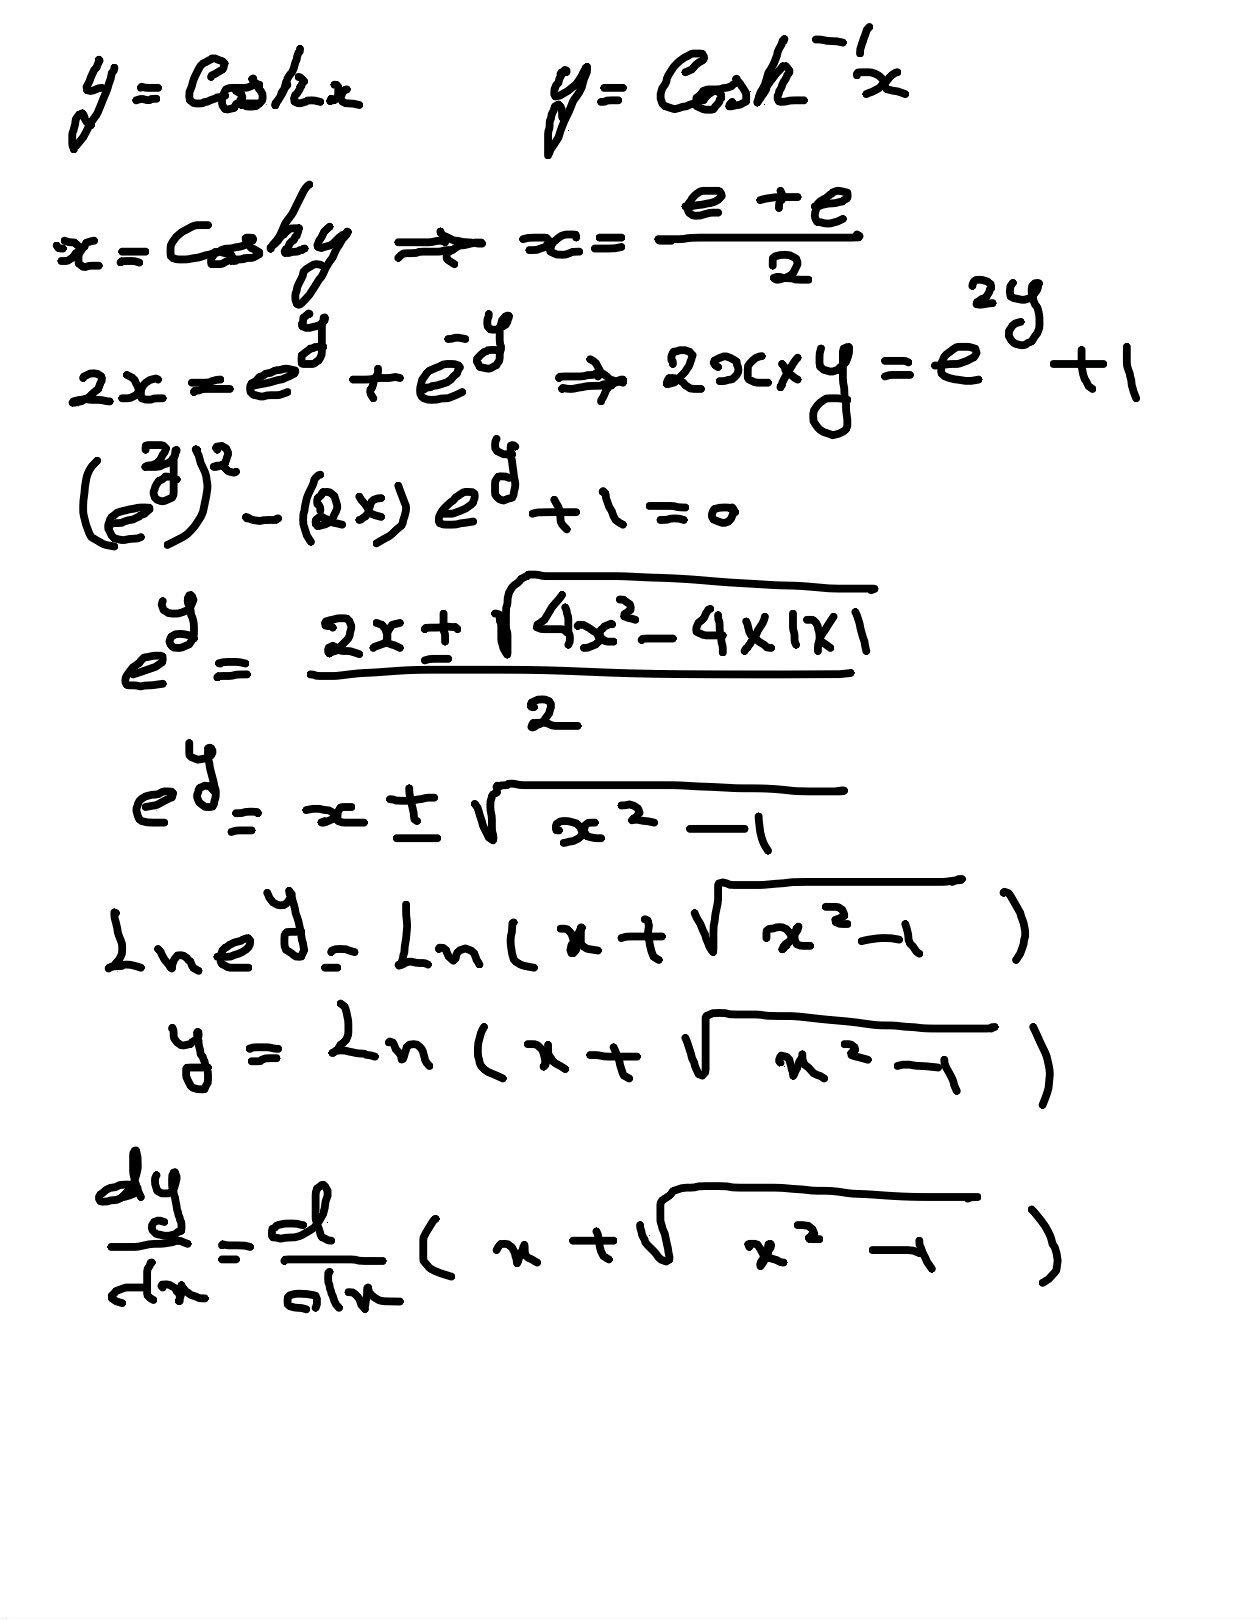 y = Coshx y = Cosh⁻¹x
x = Coshy ⇒ x = (e + e)/2
2x = e^y + e^-y ⇒ 2xxy = e^2y + 1
(e^2y)² - (2x) e^y + 1 = 0
e^y = (2x ± √(4x² - 4x1x1))/2
e^y = x ± √(x² - 1)
Ln e^y = Ln (x + √(x² - 1))
y = Ln (x + √(x² - 1))
dy/dx = d/dx (x + √(x² - 1))